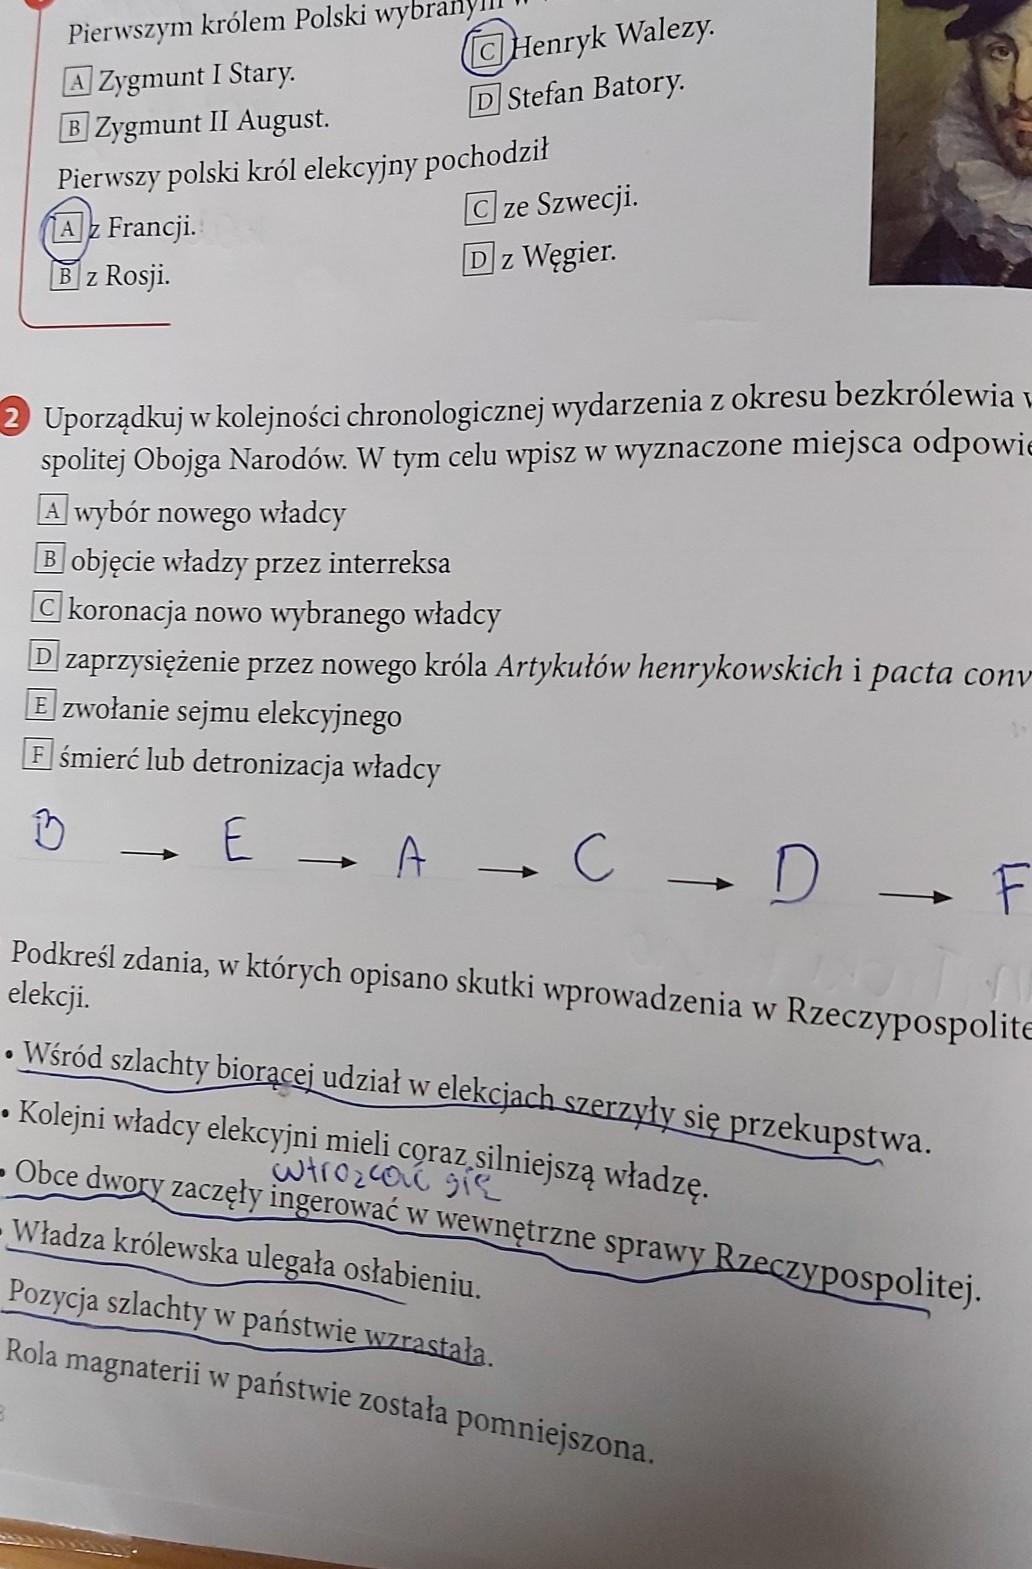 Pierwszym królem Polski wybranym
A Zygmunt I Stary.
C Henryk Walezy.
B Zygmunt II August.
D Stefan Batory.
Pierwszy polski król elekcyjny pochodził
A z Francji.
C ze Szwecji.
B z Rosji.
D z Węgier.
2 Uporządkuj w kolejności chronologicznej wydarzenia z okresu bezkrólewia
spolitej Obojga Narodów. W tym celu wpisz w wyznaczone miejsca odpowie
A wybór nowego władcy
B objęcie władzy przez interreksa
C koronacja nowo wybranego władcy
D zaprzysiężenie przez nowego króla Artykułów henrykowskich i pacta conv
E zwołanie sejmu elekcyjnego
F śmierć lub detronizacja władcy
B → E → A → C → D → F
Podkreśl zdania, w których opisano skutki wprowadzenia w Rzeczypospolite
elekcji.
• Wśród szlachty biorącej udział w elekcjach szerzyły się przekupstwa.
• Kolejni władcy elekcyjni mieli coraz silniejszą władzę.
wtrozcać się
• Obce dwory zaczęły ingerować w wewnętrzne sprawy Rzeczypospolitej.
Władza królewska ulegała osłabieniu.
Pozycja szlachty w państwie wzrastała.
Rola magnaterii w państwie została pomniejszona.